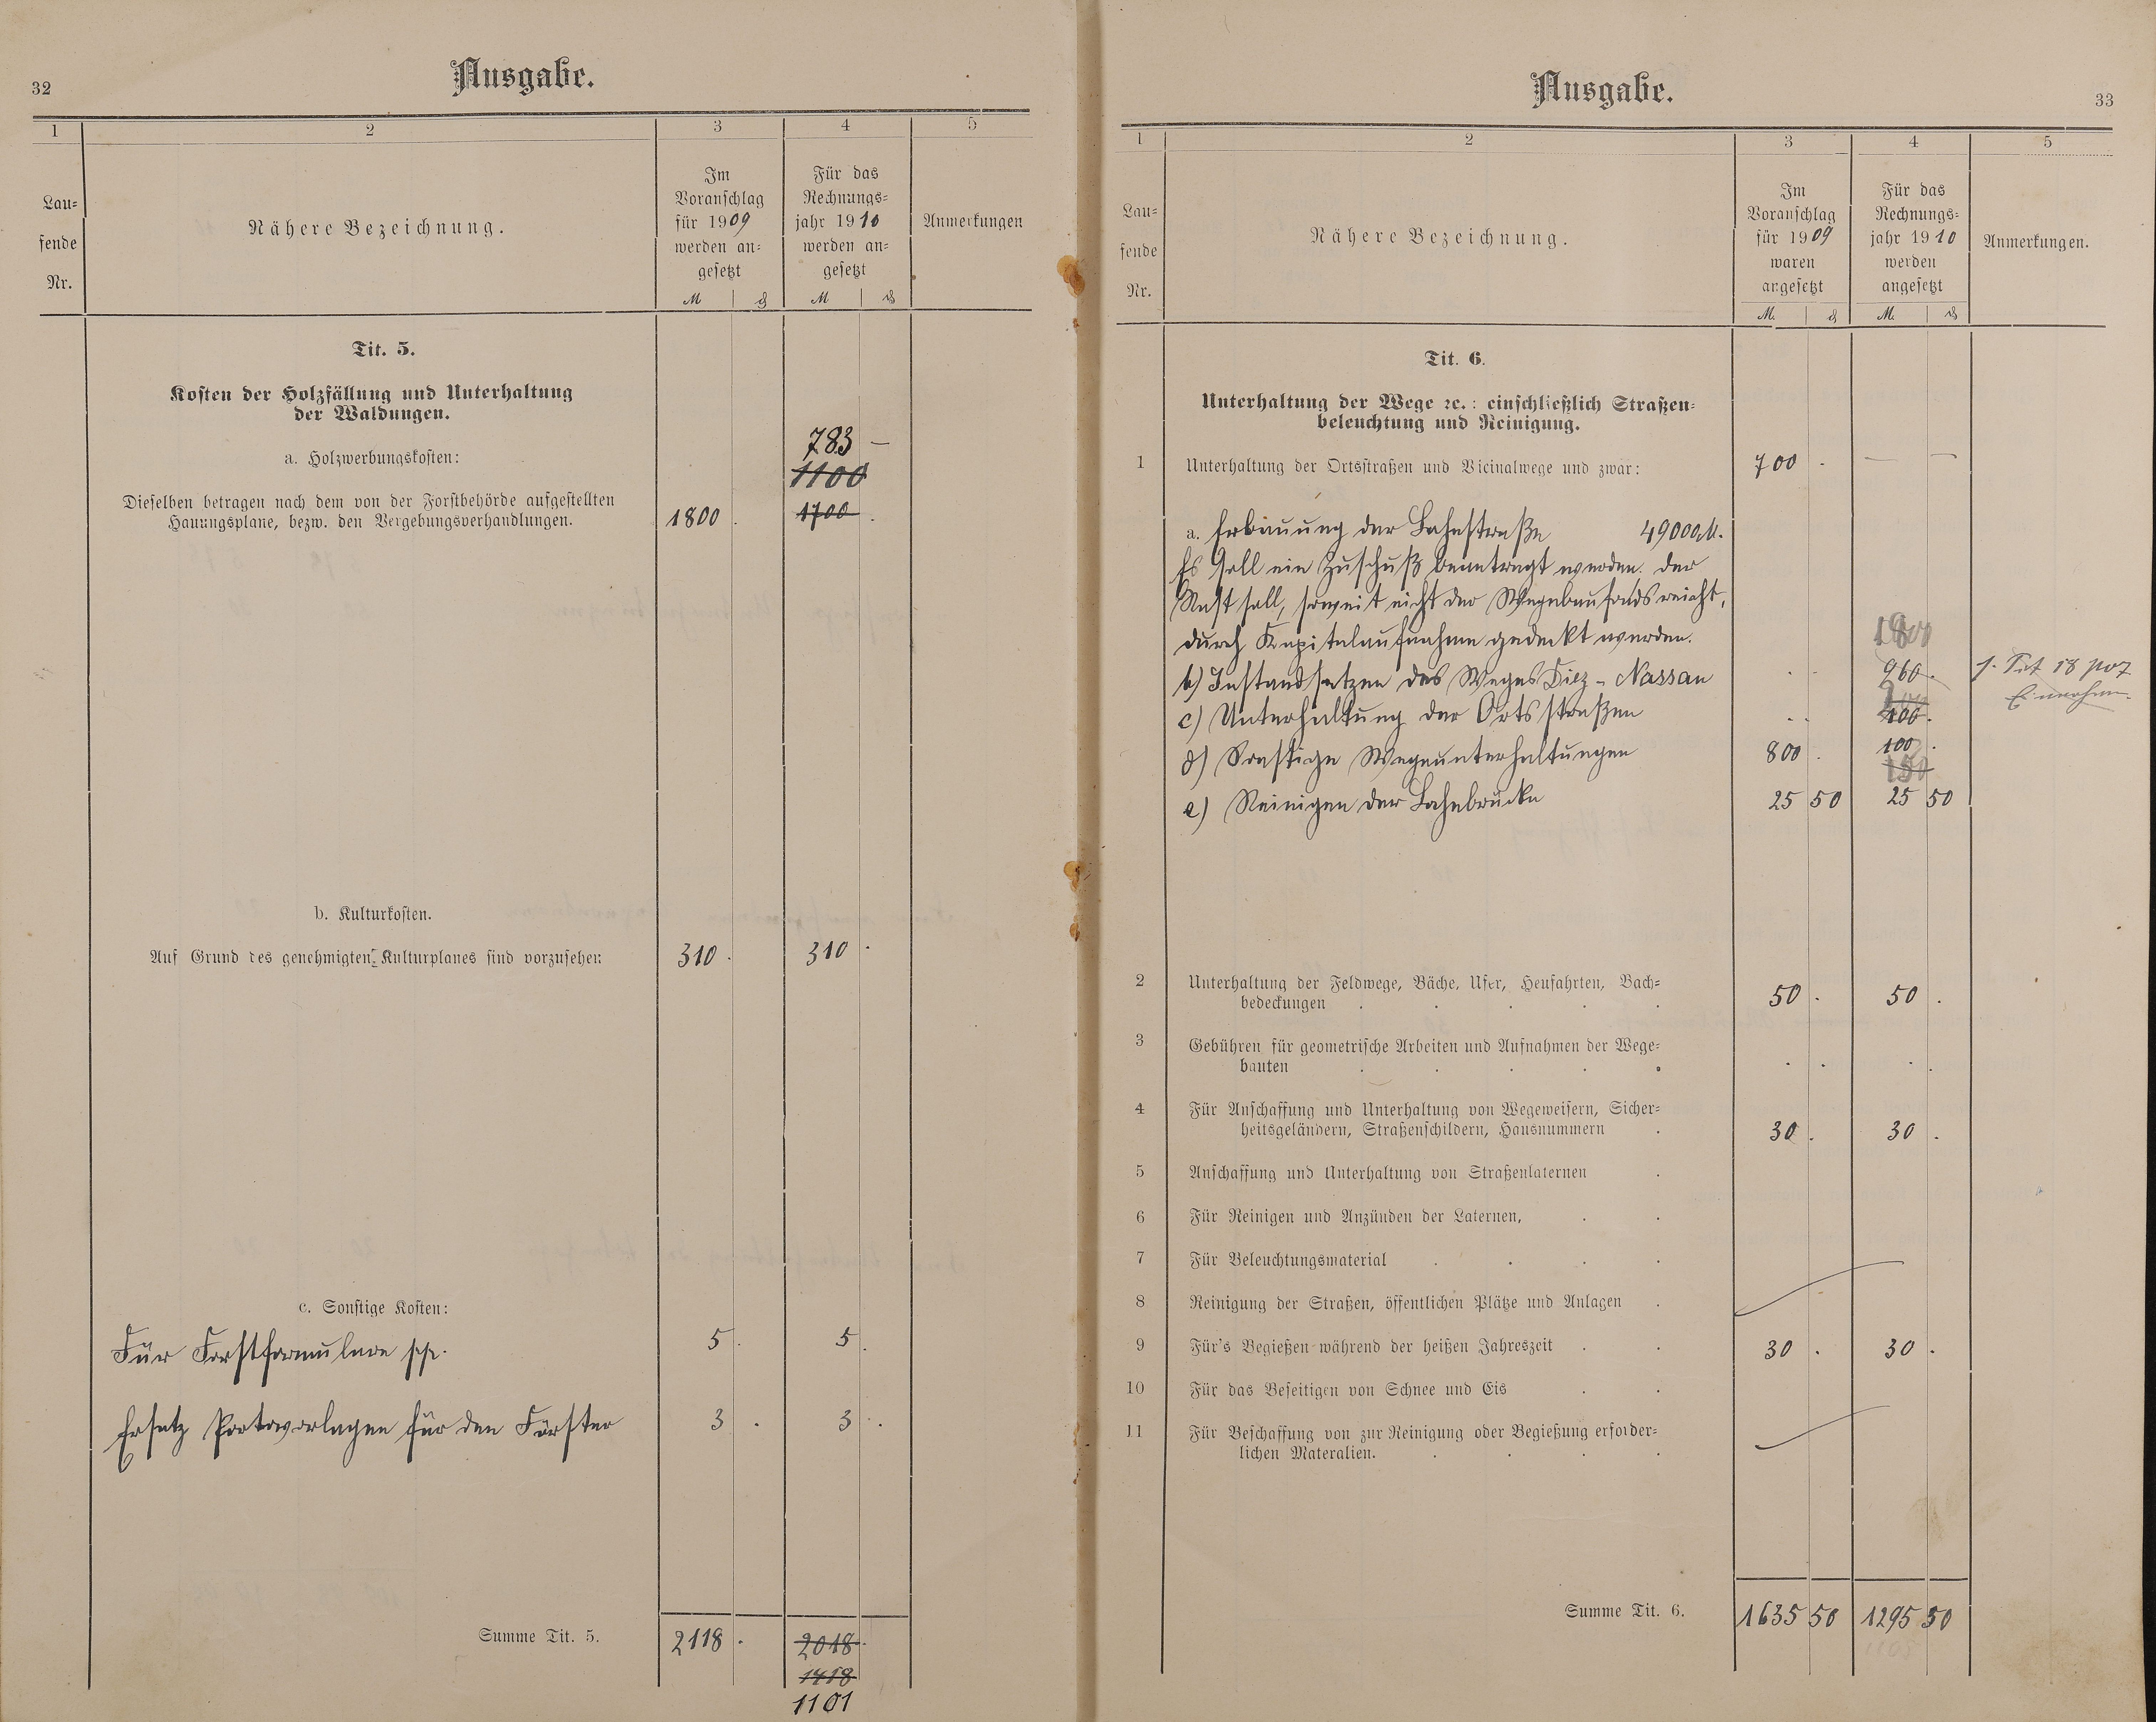 32
Ausgabe.
1 2 3 4 5
Lau-
fende
Nr.
Nähere Bezeichnung.
Im
Voranschlag
für 1909
werden an-
gesetzt
M ₰
Für das
Rechnungs-
jahr 1910
werden an-
gesetzt
M ₰
Anmerkungen
Tit. 5.
Kosten der Holzfällung und Unterhaltung
der Waldungen.
783 —
a. Holzwerbungskosten:
1100
Dieselben betragen nach dem von der Forstbehörde aufgestellten
Hauungsplane, bezw. den Vergebungsverhandlungen. 1800 . 1700 .
b. Kulturkosten.
Auf Grund des genehmigten Kulturplanes sind vorzusehen 310 . 310 .
c. Sonstige Kosten:
Für Forstformulare pp. 5 . 5 .
Ersatz Portovorlagen für den Förster 3 . 3 .
Summe Tit. 5. 2118 . 2018 .
1418
1101
Ausgabe.
33
1 2 3 4 5
Lau-
fende
Nr.
Nähere Bezeichnung.
Im
Voranschlag
für 1909
waren
angesetzt
M. ₰
Für das
Rechnungs-
jahr 1910
werden
angesetzt
M. ₰
Anmerkungen.
Tit. 6.
Unterhaltung der Wege ꝛc.: einschließlich Straßen-
beleuchtung und Reinigung.
1 Unterhaltung der Ortsstraßen und Vicinalwege und zwar: 700 . — —
a. Erbauung der Bahnstraße 49000 M.
Es soll ein Zuschuß beantragt werden. Der
Rest soll, soweit nicht der Wegebaufonds reicht,
durch Kapitalaufnahme gedeckt werden.
b) Instandsetzen des Weges Diez - Nassau . . 960 . f. Tit 18 pos 7
Einnahm.
c) Unterhaltung der Ortsstraßen . . 100 .
d) Sonstige Wegeunterhaltungen 800 . 100 .
150
e) Reinigen der Lahnbrücke 25 50 25 50
2 Unterhaltung der Feldwege, Bäche, Ufer, Heufahrten, Bach-
bedeckungen 50 . 50 .
3 Gebühren für geometrische Arbeiten und Aufnahmen der Wege-
bauten . . . .
4 Für Anschaffung und Unterhaltung von Wegeweisern, Sicher-
heitsgeländern, Straßenschildern, Hausnummern 30 . 30 .
5 Anschaffung und Unterhaltung von Straßenlaternen
6 Für Reinigen und Anzünden der Laternen,
7 Für Beleuchtungsmaterial
8 Reinigung der Straßen, öffentlichen Plätze und Anlagen
9 Für's Begießen während der heißen Jahreszeit 30 . 30 .
10 Für das Beseitigen von Schnee und Eis
11 Für Beschaffung von zur Reinigung oder Begießung erforder-
lichen Materalien.
Summe Tit. 6. 1635 50 1295 50